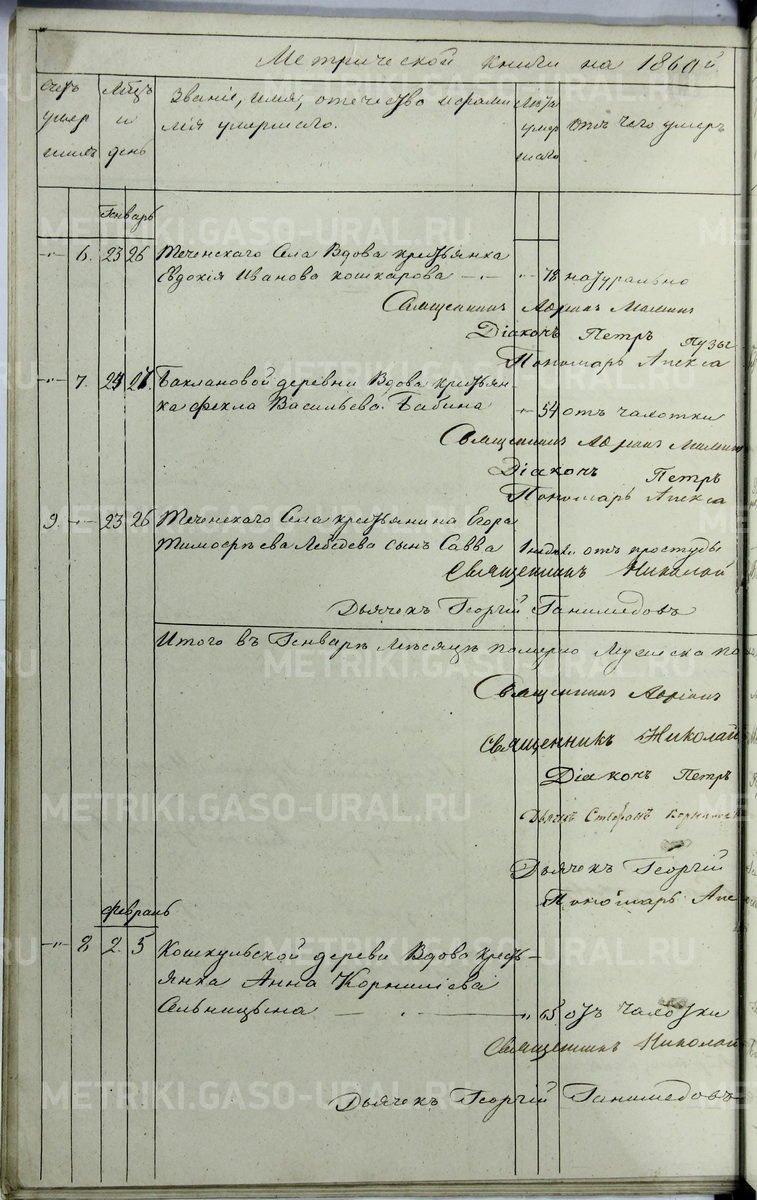 Метрической книги на 1860й
Счетъ умершихъ
Мѣсяцъ и день
Званіе, имя, отечество и фами
лія умершаго.
Лѣта умершаго
Отъ чего умеръ
Генварь
" 6. 23 26 Теченскаго Села Вдова крестьянка
Евдокія Иванова Кошкарова — " 78 натурально
Священникъ Адріанъ Маминъ
Діаконъ Петръ Пузы
Пономарь Алекса
" 7. 24 27. Баклановой деревни Вдова крестьян-
ка Фекла Васильева Бабина " 54 отъ чахотки
Священникъ Адріанъ Мамин
Діаконъ Петръ
Пономарь Алекса
9. " 23 26 Теченскаго Села крестьянина Егора
Тимофѣева Лебедева сынъ Савва 1 недѣл. отъ простуды
Священникъ Николай
Дьячекъ Георгій Ганимедовъ
Итого въ Генварѣ Мѣсяцѣ померло Мужеска по
Священникъ Адріанъ
Священникъ Николай
Діаконъ Петръ
Дьячекъ Стефанъ
Дьячекъ Георгій
Пономарь Алек
Февраль
" 8 2. 5 Кошкульской дерев Вдова крестъ-
янка Анна Корнилiева
Сельницына — " 65 отъ чахотки
Священникъ Николай
Дьячекъ Георгій Ганимедовъ
METRIKI.GASO-URAL.RU